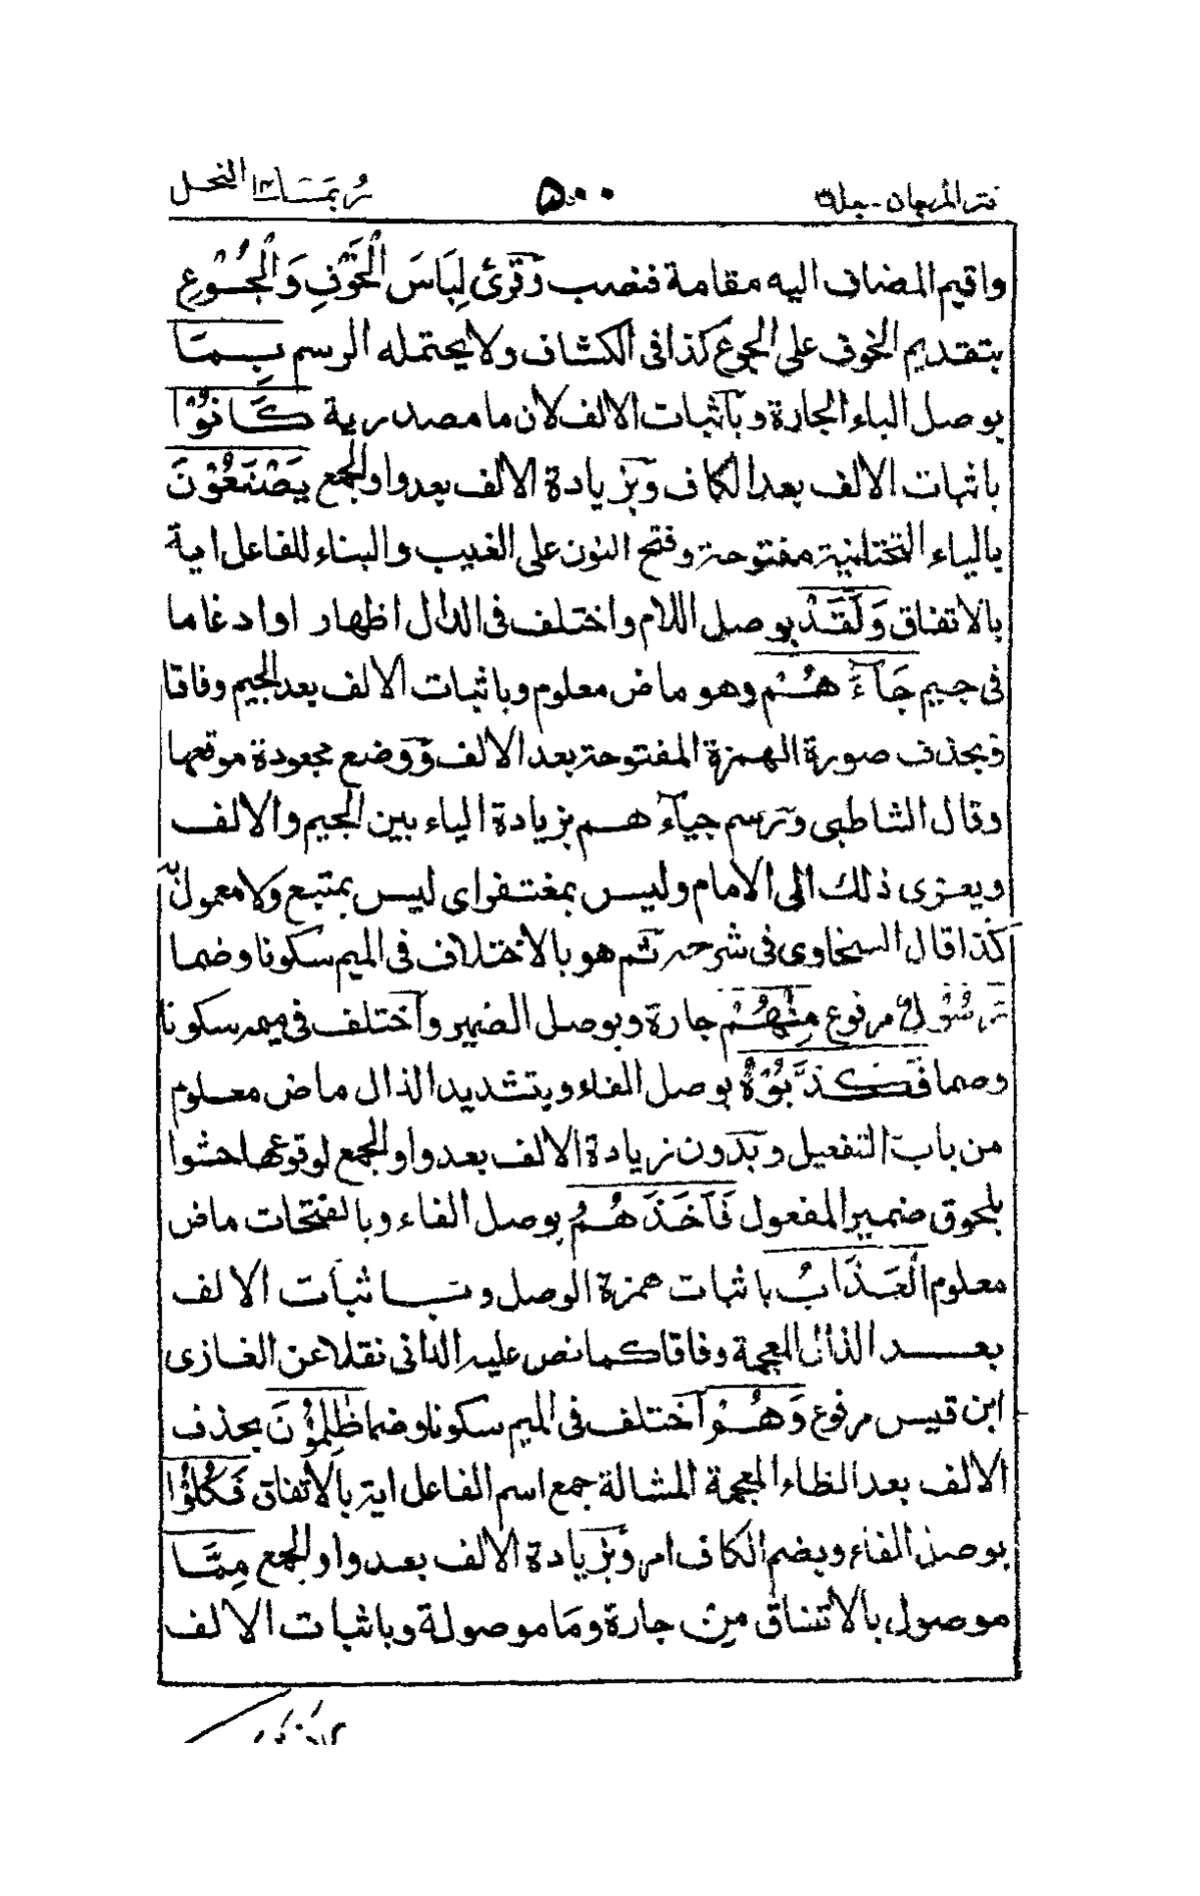 نثر المرجان - جلد ٣ ٥٠٠ ربما ١٤ النحل
واقيم المضاف اليه مقامة فنصب وَقرئ لِبَاسَ الْخَوْفِ وَالْجُوْعِ
بتقديم الخوف على الجوع كذا فى الكشاف ولا يحتمله الرسم بِـمَـا
بوصل الباء الجارة وبآثبات الالف لان ما مصدرية كَانُوْا
باثبات الالف بعد الكاف وبَزيادة الالف بعد واو الجمع يَصْنَعُوْنَ
بالياء التحتانية مفتوحة وفتح النون على الغيب والبناء للفاعل اية
بالاتفاق وَلَقَدْ بوصل اللام واختلف فى الدال اظهار اوادغاما
فى جيم جَآءَ هُمْ وهو ماض معلوم وباثبات الالف بعد الجيم وفاقا
وبحذف صورة الهمزة المفتوحة بعد الالف وَوضع مجعودة موقعها
وقال الشاطبى وترسم جيآء هم بزيادة الياء بين الجيم والالف
ويعزى ذلك الى الامام وليس بمغتفراى ليس بمتبع ولا معمول به
كذا قال السخاوى فى شرحه ثم هو بالاختلاف فى الميم سكونا وضما
رَسُوْلٌ مرفوع مِنْهُمْ جارة وبوصل الضمير وآختلف فى ميمه سكونا
وضما فَكَذَّبُوْهُ بوصل الفاء وبتشديد الذال ماض معلوم
من باب التفعيل وبَدون زيادة الالف بعد واو الجمع لوقوعها حشوا
بلحوق ضمير المفعول فَآخَذَ هُمُ بوصل الفاء وبالفتحات ماض
معلوم الْعَذَابُ باثبات همزة الوصل وبـاثبات الالف
بعـــد الذال المعجمة وفاقا كما نص عليه الدانى نقلا عن الغازى
ابن قيس مرفوع وَهُمْ آختلف فى الميم سكونا وضما ظٰلِمُوْنَ بحذف
الالف بعد الظاء المعجمة المشالة جمع اسم الفاعل اية بالاتفاق فَكُلُوْا
بوصل الفاء وبضم الكاف امر وَبزيادة الالف بعد واو الجمع مِمَّـا
موصول بالاتفاق مِن جارة ومَا موصولة وباثبات الالف